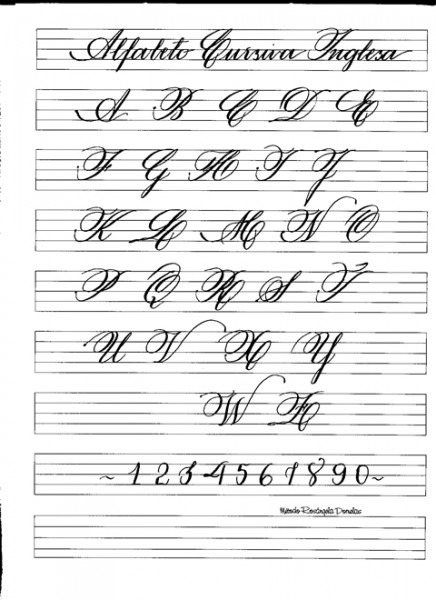 Alfabeto Cursiva Inglesa
A B C D E
F G H I J
K L M N O
P Q R S T
U V X Y
W Z
~ 1 2 3 4 5 6 7 8 9 0 ~
Método Rosângela